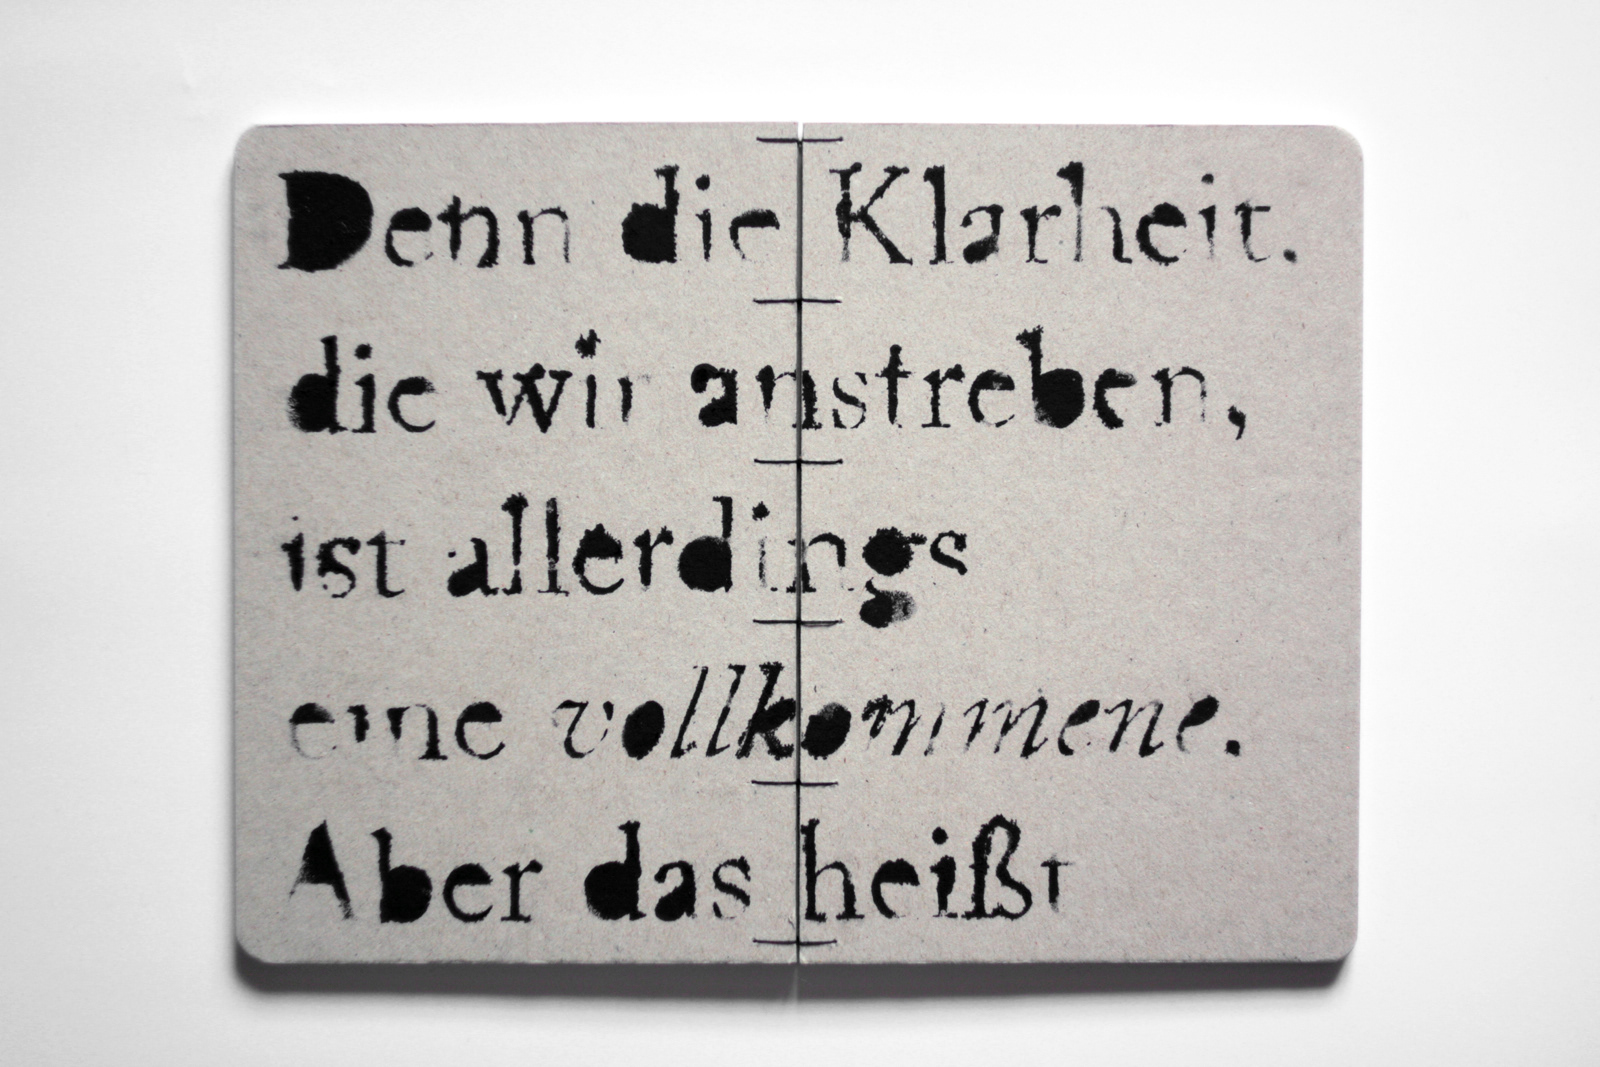 Denn die Klarheit.
die wir anstreben,
ist allerdings
eine vollkommene.
Aber das heißt